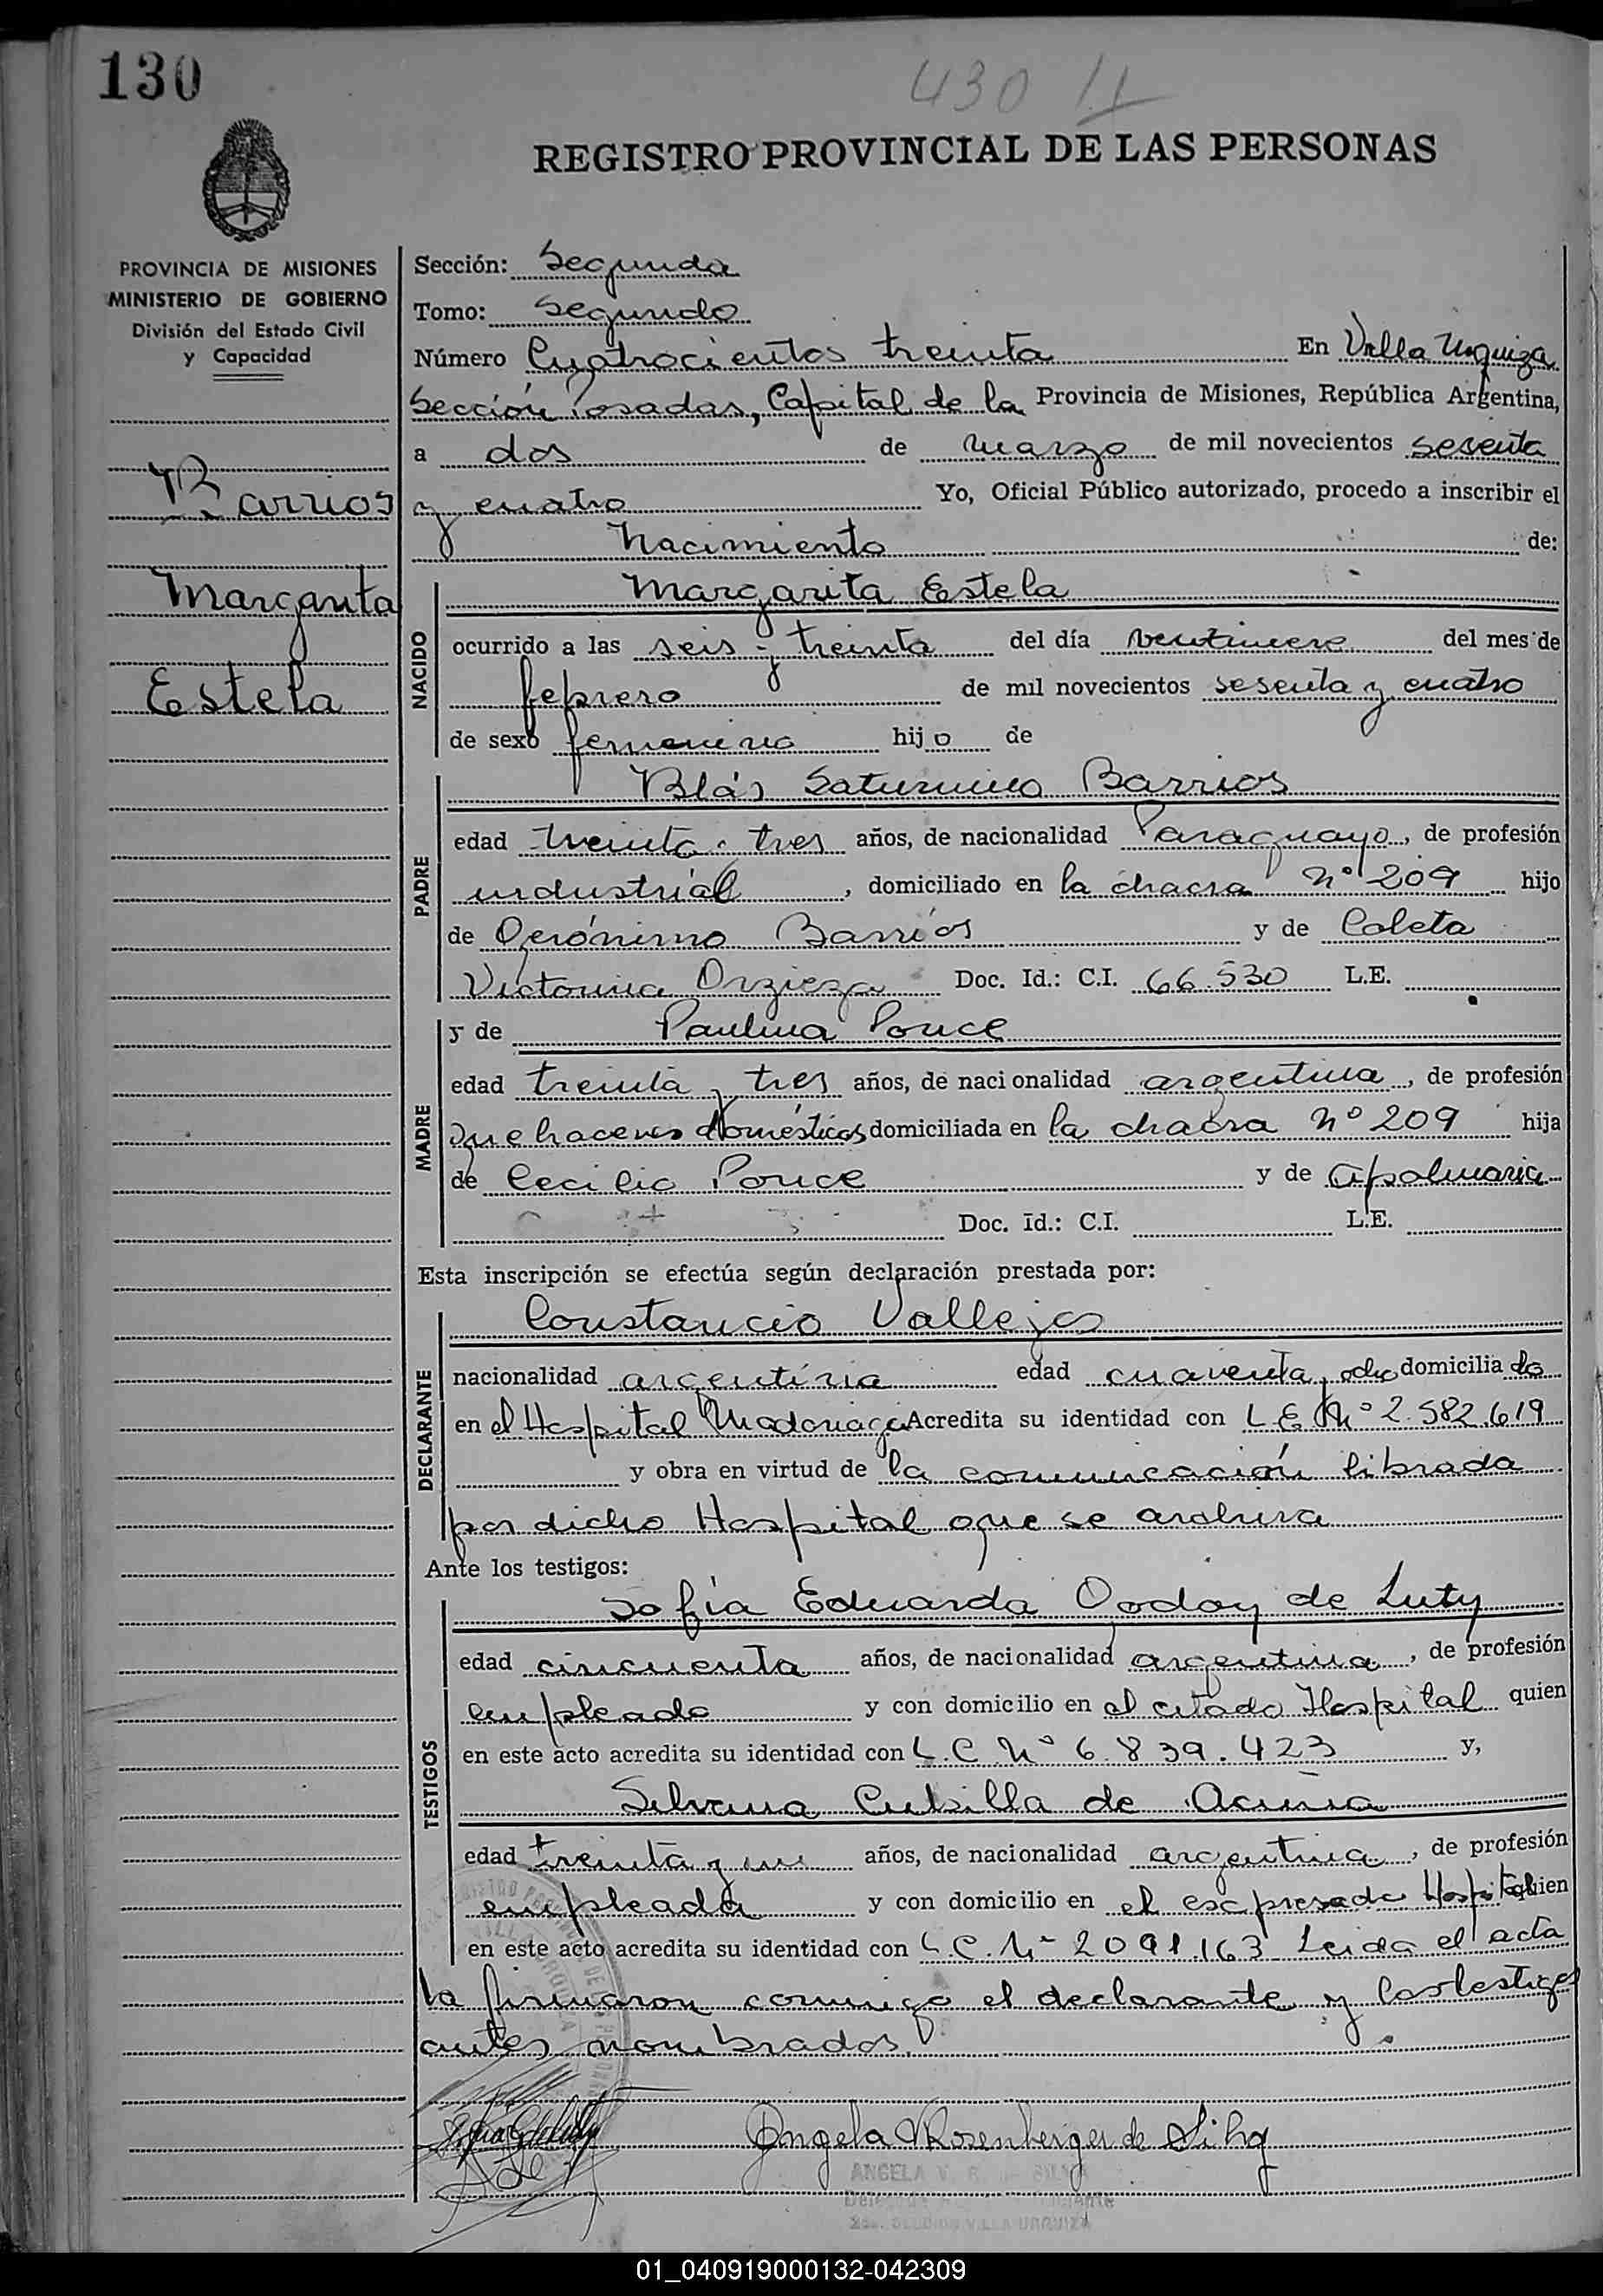 130
430 II
REGISTRO PROVINCIAL DE LAS PERSONAS
PROVINCIA DE MISIONES
MINISTERIO DE GOBIERNO
División del Estado Civil
y Capacidad
Barrios
Margarita
Estela
Sección: Segunda
Tomo: Segundo
Número Cuatrocientos treinta En Villa Urquiza
Sección Posadas, Capital de la Provincia de Misiones, República Argentina,
a dos de marzo de mil novecientos sesenta
y cuatro Yo, Oficial Público autorizado, procedo a inscribir el
Nacimiento de:
NACIDO
Margarita Estela
ocurrido a las seis y treinta del día veintinueve del mes de
febrero de mil novecientos sesenta y cuatro
de sexo femenino hijo de
PADRE
Blás Saturnino Barrios
edad treinta y tres años, de nacionalidad Paraguayo, de profesión
industrial, domiciliado en la chacra Nº 209 hijo
de Gerónimo Barrios y de Coleta
Victorina Doc. Id.: C.I. 66.530 L.E.
MADRE
y de Paulina Ponce
edad treinta y tres años, de nacionalidad argentina, de profesión
quehaceres domésticos domiciliada en la chacra Nº 209 hija
de Cecilio Ponce y de Apolinaria
Doc. Id.: C.I. L.E.
Esta inscripción se efectúa según declaración prestada por:
DECLARANTE
Constancio Vallejos
nacionalidad argentina edad cuarenta y ocho domiciliado
en el Hospital Madariaga Acredita su identidad con L E Nº 2.582.619
y obra en virtud de la comunicación librada
por dicho Hospital que se archiva
Ante los testigos:
TESTIGOS
Sofia Eduarda Godoy de Luty
edad cincuenta años, de nacionalidad argentina, de profesión
empleada y con domicilio en el citado Hospital quien
en este acto acredita su identidad con L.C Nº 6.839.423 y,
Silvana de Acuña
edad treinta y un años, de nacionalidad argentina, de profesión
empleada y con domicilio en el expresado Hospital quien
en este acto acredita su identidad con L.C. Nº 2091.163 Leida el acta
la firmaron conmigo el declarante y los testigos
antes nombrados.
Angela V Rosenberger de Silva
ANGELA V. R. de SILVA
2da. SECCION VILLA URQUIZA
01_040919000132-042309